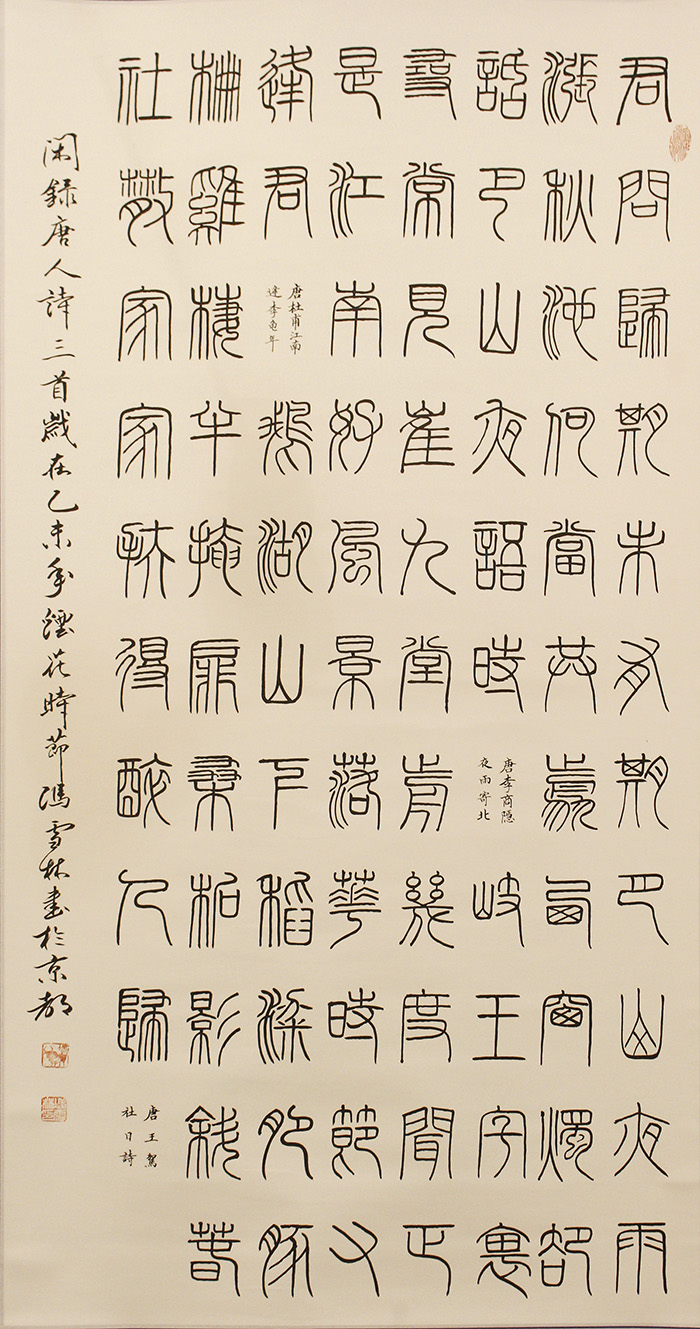 君問歸期未有期巴山夜雨
漲秋池何當共剪西窗燭卻
話巴山夜語時
唐李商隐
夜雨寄北
岐王宅裏
尋常見崔九堂前幾度聞正
是江南好風景落華時節又
逢君
唐杜甫江南
逢李龟年
鵝湖山下稻粱肥豚
柵雞棲半掩扉桑柘影斜春
社散家家扶得醉人歸
唐王駕
社日詩
閑錄唐人詩三首歲在乙未年花時節馮雪林書於京都